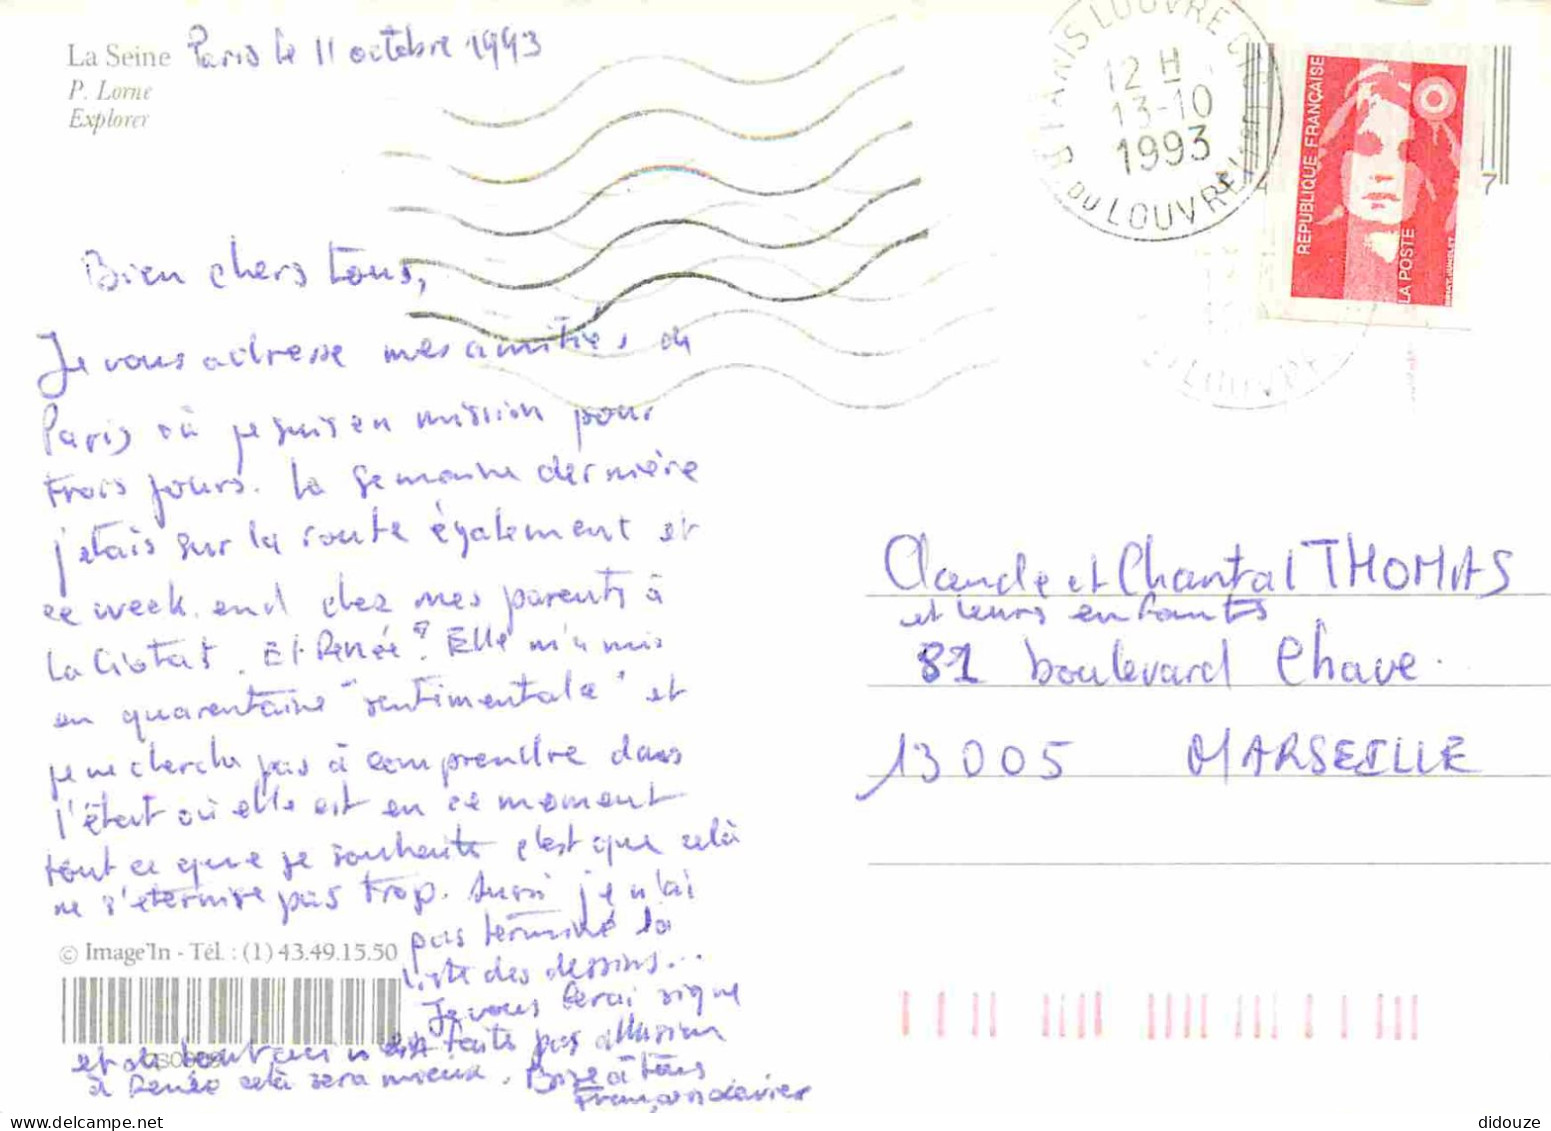 La Seine
P. Lorne
Explorer
Paris le 11 octobre 1993
Bien chers tous,
Je vous adresse mes amitiés de
Paris où je suis en mission pour
trois jours. La semaine dernière
j'étais sur la route également et
ce week.end chez mes parents à
La Ciotat. Et Renée ? Elle m'a mis
en quarantaine "sentimentale" et
je ne cherche pas à comprendre dans
l'état où elle est en ce moment
tout ce que je souhaite c'est que cela
ne s'éternise pas trop. Aussi je n'ai
pas terminé la
liste des dessins...
Je vous ferai signe
et de tout ceci n'en faite pas allusion
à Renée celà sera mieux. Bise à tous
François Xavier
© Image'In - Tél. : (1) 43.49.15.50
PARIS LOUVRE
12 H
13-10
1993
R. DU LOUVRE
RÉPUBLIQUE FRANÇAISE
LA POSTE
7
Claude et Chantal THOMAS
et leurs enfants
81 boulevard Chave.
13005 MARSEILLE
didouze